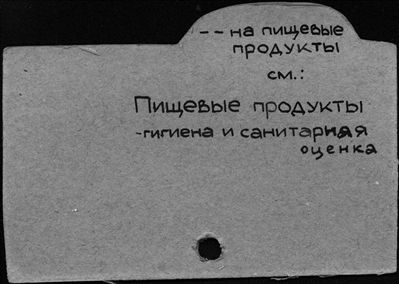 -- на пищевые
продукты
см.:
Пищевые продукты
-гигиена и санитарная
оценка